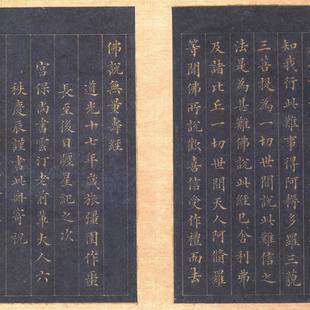 知我行此難事得阿耨多羅三藐
三菩提為一切世間說此難信之
法是為甚難佛說此經已舍利弗
及諸比丘一切世間天人阿脩羅
等聞佛所說歡喜信受作禮而去
佛說無量壽經
道光十七年歲旅彊圉作噩
長至後日躔星紀之次
宮保尚書雲汀老前輩大人六
秩慶辰謹書此冊寄祝